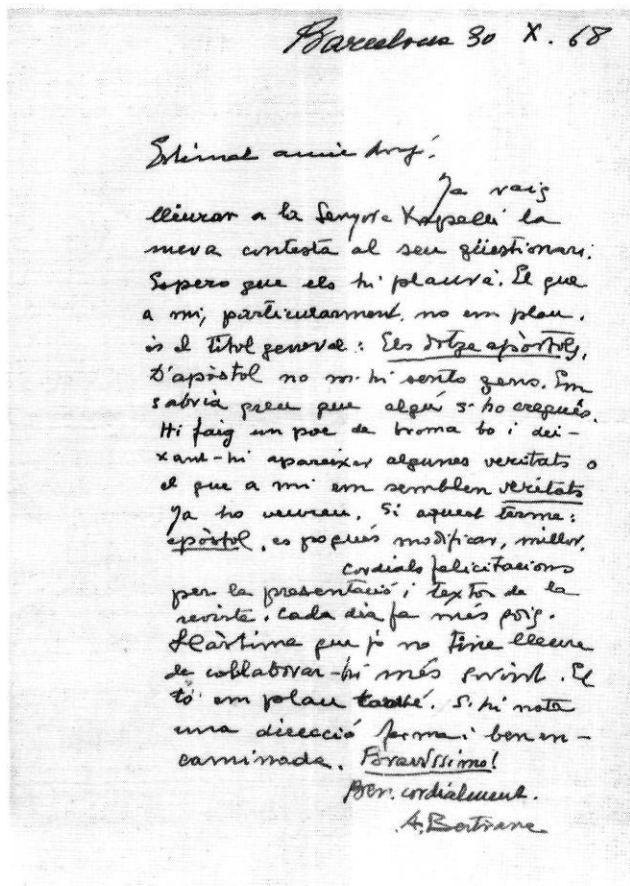 Barcelona 30 X. 68
Estimat amic Assgé:
Ja vaig
lliurar a la Senyora Kappelli la
meva contesta al seu qüestionari.
Espero que els hi plaurà. El que
a mi, particularment, no em plau,
és el títol general: Els dotze apòstols.
D'apòstol no m'hi sento gens. Em
sabria greu que algú s'ho cregués.
Hi faig un poc de broma to i dei-
xant-hi aparèixer algunes veritats o
el que a mi em semblen veritats
Ja ho veureu. Si aquest terme:
apòstol, es pogués modificar, millor.
Cordials felicitacions
per la presentació i textos de la
revista. Cada dia fa més goig.
Llàstima que jo no tinc lleure
de col·laborar-hi més sovint. El
to em plau també. S'hi nota
una direcció ferma i ben en-
caminada. Bravíssimo!
Ben cordialment.
A. Bertrana